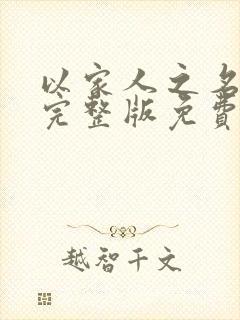 以家人之名
完整版免費
越智千文